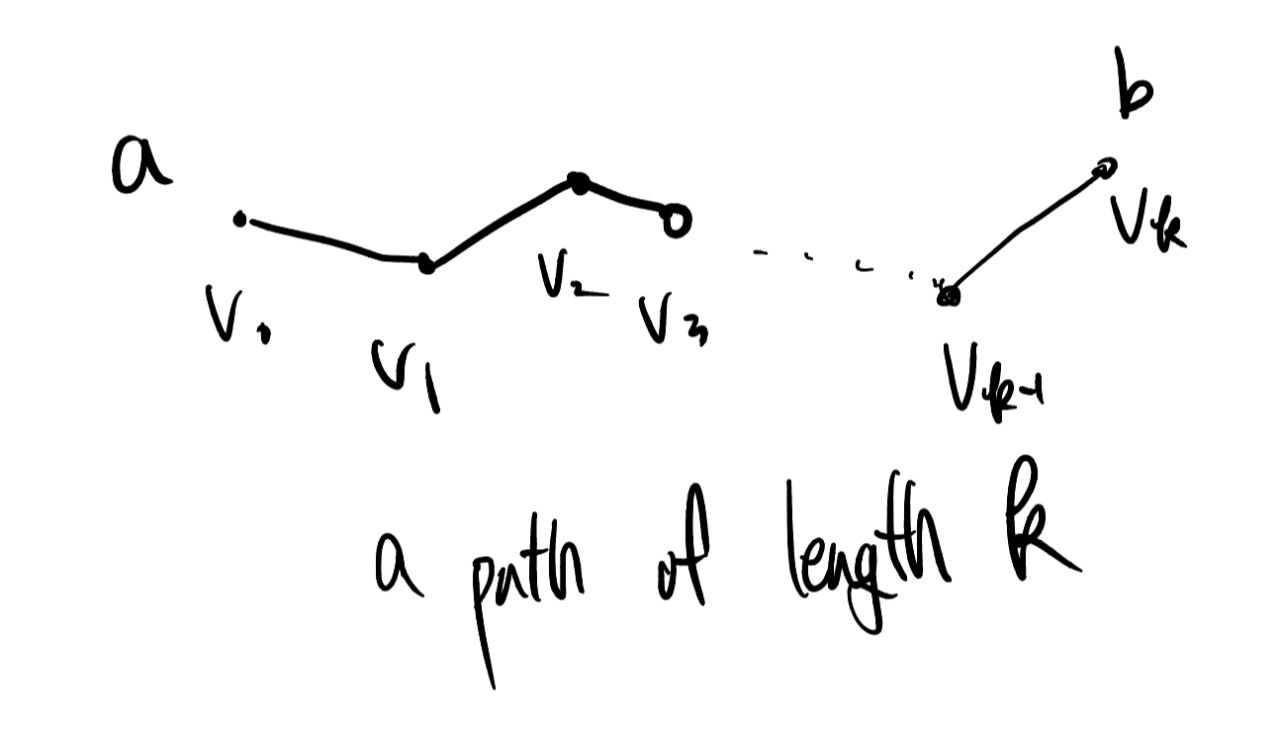 a
b
V₀
V₁
V₂
V₃
Vₖ₋₁
Vₖ
a path of length k